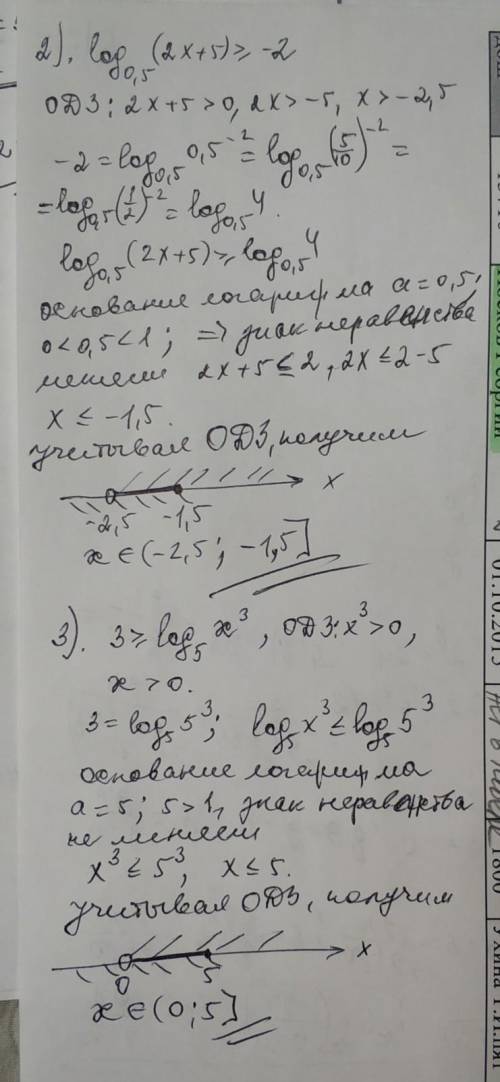 2). log₀,₅(2x+5) ≥ -2
ОДЗ: 2x+5>0, 2x>-5, x>-2,5
-2 = log₀,₅ 0,5⁻² = log₀,₅(5/10)⁻² =
= log₀,₅(1/2)⁻² = log₀,₅ 4.
log₀,₅(2x+5) ≥ log₀,₅ 4
основание логарифма a=0,5;
0<0,5<1; ⇒ знак неравенства
меняем 2x+5 ≤ 2, 2x ≤ 2-5
x ≤ -1,5.
учитывая ОДЗ, получим
x
-2,5 -1,5
x ∈ (-2,5; -1,5]
3). 3 ≥ log₅ x³, ОДЗ: x³>0,
x>0.
3 = log₅ 5³; log₅ x³ ≤ log₅ 5³
основание логарифма
a=5; 5>1, знак неравенства
не меняем
x³ ≤ 5³, x ≤ 5.
учитывая ОДЗ, получим
x
0 5
x ∈ (0; 5]
01.10.2015
1800